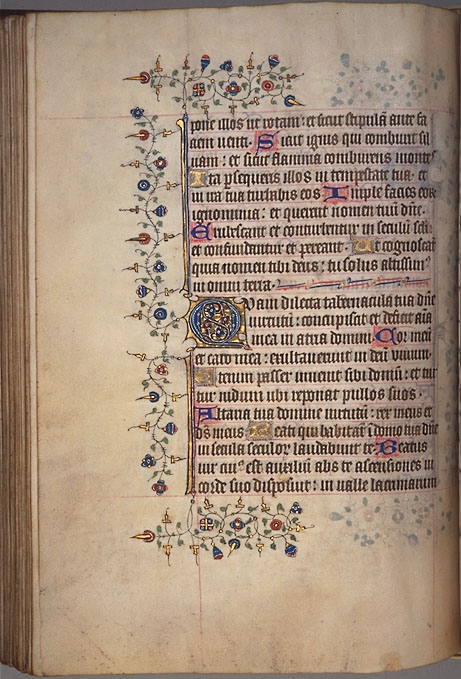 pone illos ut rotam: et sicut stipulā ante fa
ciem uenti. Sicut ignis qui comburit sil
uam: et sicut flamma comburens montes
Ita ꝑsequeris illos in tempestate tua: et
in ira tua turbabis eos Imple facies eoꝝ
ignominia: et querent nomen tuū dn̄e.
Erubescant et conturbentur in seculū scł̄i:
et confundantur et pereant. Et cognoscāt
quia nomen tibi deus: tu solus altissimꝰ
in omni terra.
Quam dilecta tabernacula tua dn̄e
uirtutū: concupiscit et deficit aīa
mea in atria domini. Cor meū
et caro mea: exultauerunt in deū uiuum.
Etenim passer inuenit sibi domū: et tur
tur nidum ubi reponat pullos suos.
Altaria tua domine uirtutū: rex meus et
ds̄ meus Beati qui habitāt ī domo tua dn̄e
in secula seculoꝝ laudabunt te. Beatus
uir cuiꝰ est auxiliū abs te ascensiones in
corde suo disposuit: in ualle lacrimarum